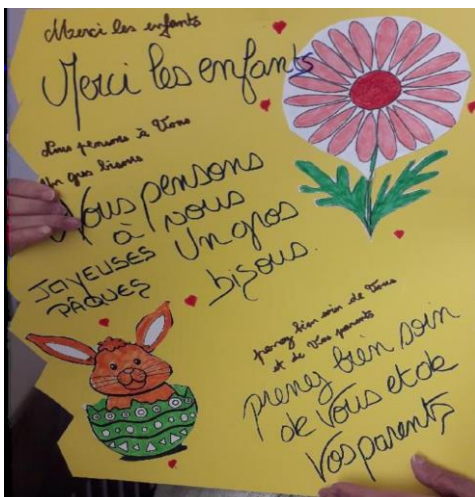 Merci les enfants
Merci les enfants
Nous pensons à Vous
Un gros bisous
Nous pensons
à vous
Un gros
bisous.
JOYEUSES
PÂQUES
prenez bien soin de Vous
et de Vos parents
prenez bien soin
de Vous et de
Vos parents